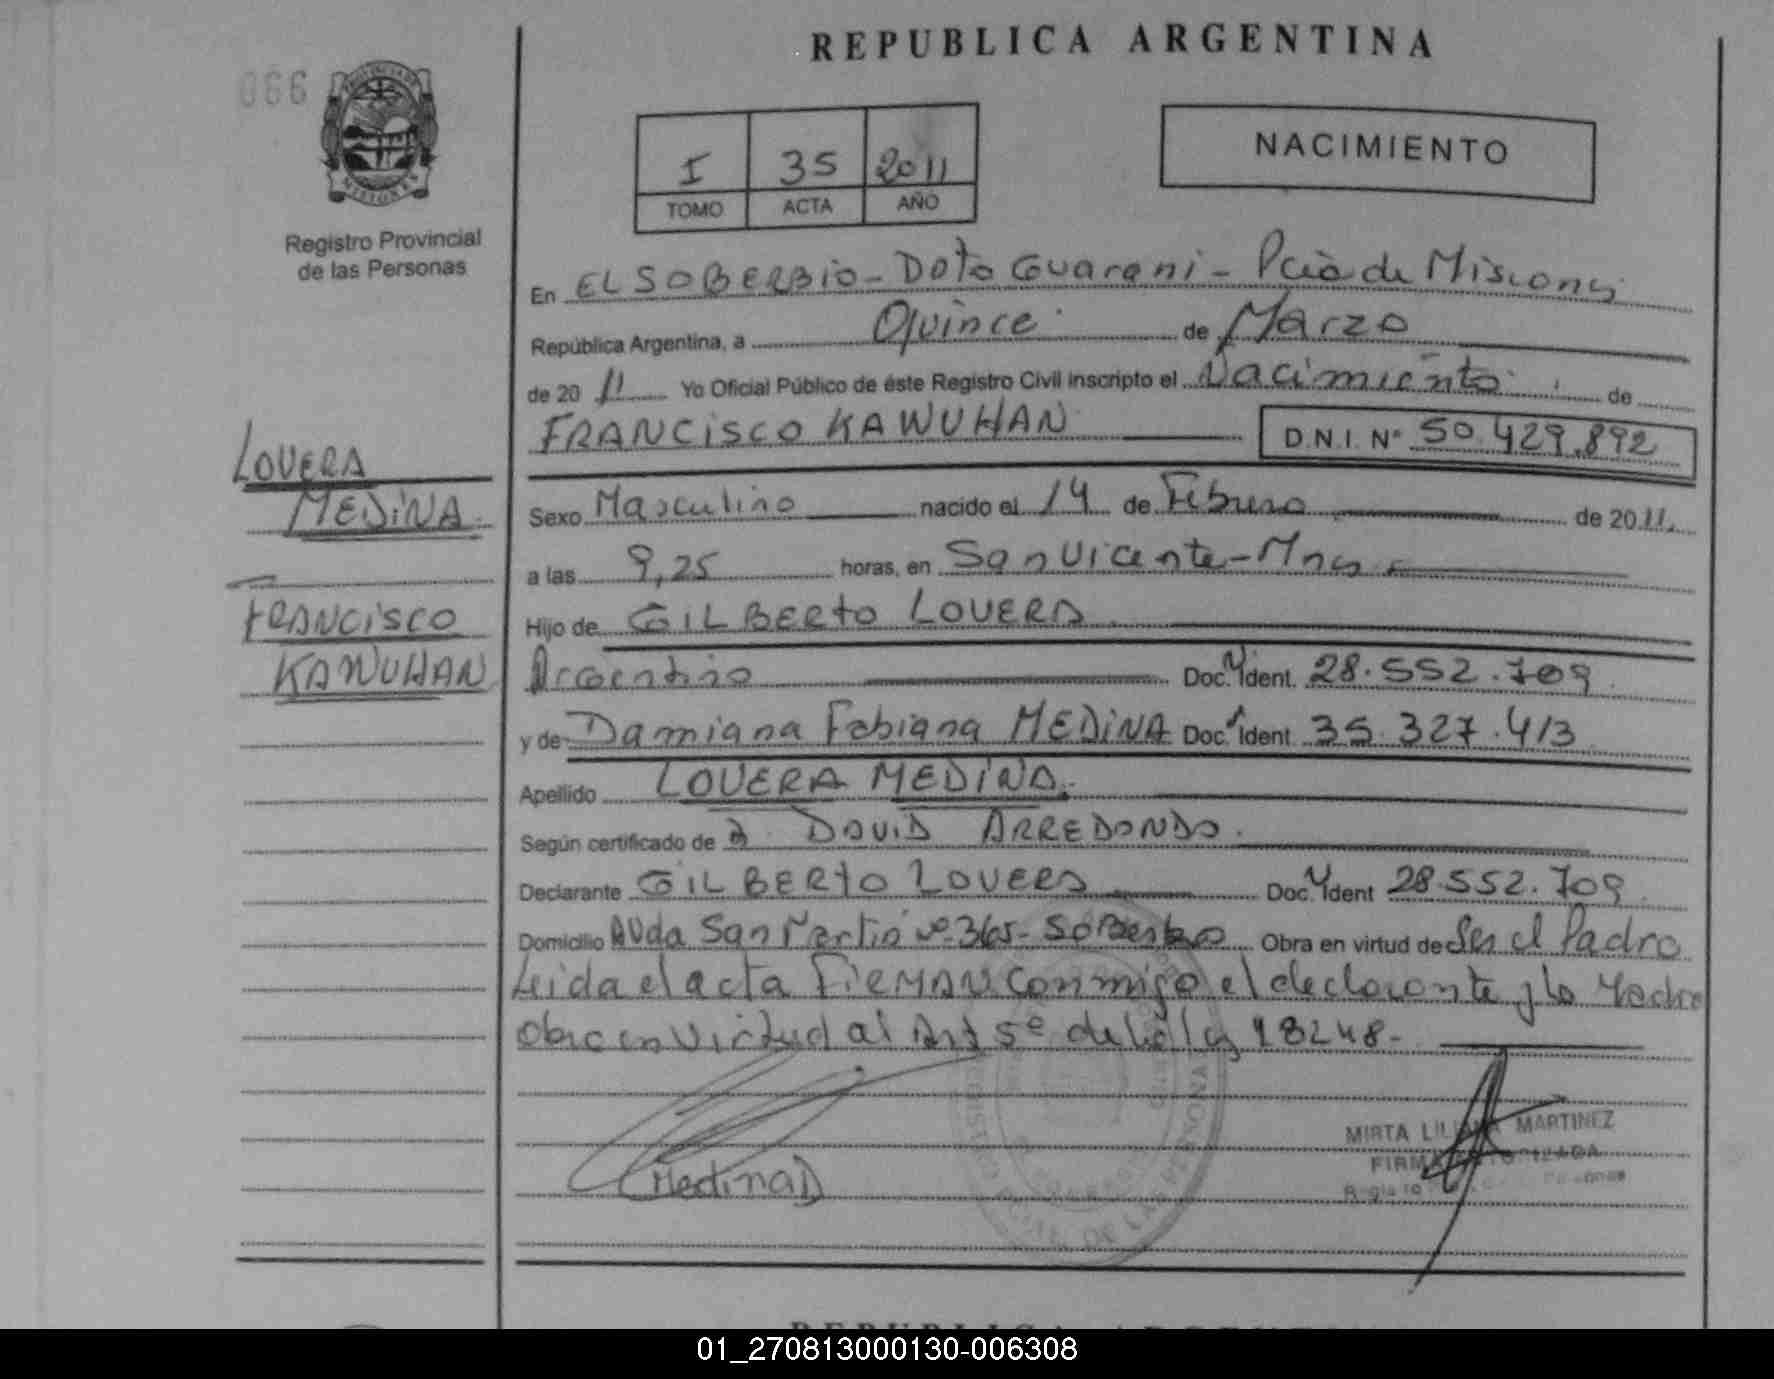 REPUBLICA ARGENTINA
066
PROVINCIA DE
MISIONES
Registro Provincial
de las Personas
I 35 2011
TOMO ACTA AÑO
NACIMIENTO
En EL SOBERBIO - Dpto Guarani - Pcia de Misiones
República Argentina, a Quince de Marzo
de 2011 Yo Oficial Público de éste Registro Civil inscripto el Nacimiento de
FRANCISCO KAWUHAN D.N.I. Nº 50.429.892
LOVERA
MEDINA.
FRANCISCO
KAWUHAN
Sexo Masculino nacido el 14 de Febrero de 2011.
a las 9,25 horas, en San Vicente - Mnes
Hijo de GILBERTO LOVERA
Argentino Doc. Ident. 28.552.709
y de Damiana Fabiana MEDINA Doc. Ident. 35.327.413
Apellido LOVERA MEDINA.
Según certificado de DAVID ARREDONDO.
Declarante GILBERTO LOVERA Doc. Ident 28.552.709
Domicilio AVda San Martin Nº 365 - Soberbio Obra en virtud de Ser el Padre
Leida el acta FIRMAN conmigo el declarante y la Madre
Obra en Virtud al Art 5º de la ley 18248 -
Medina D
MIRTA LILIANA MARTINEZ
FIRMA AUTORIZADA
01_270813000130-006308